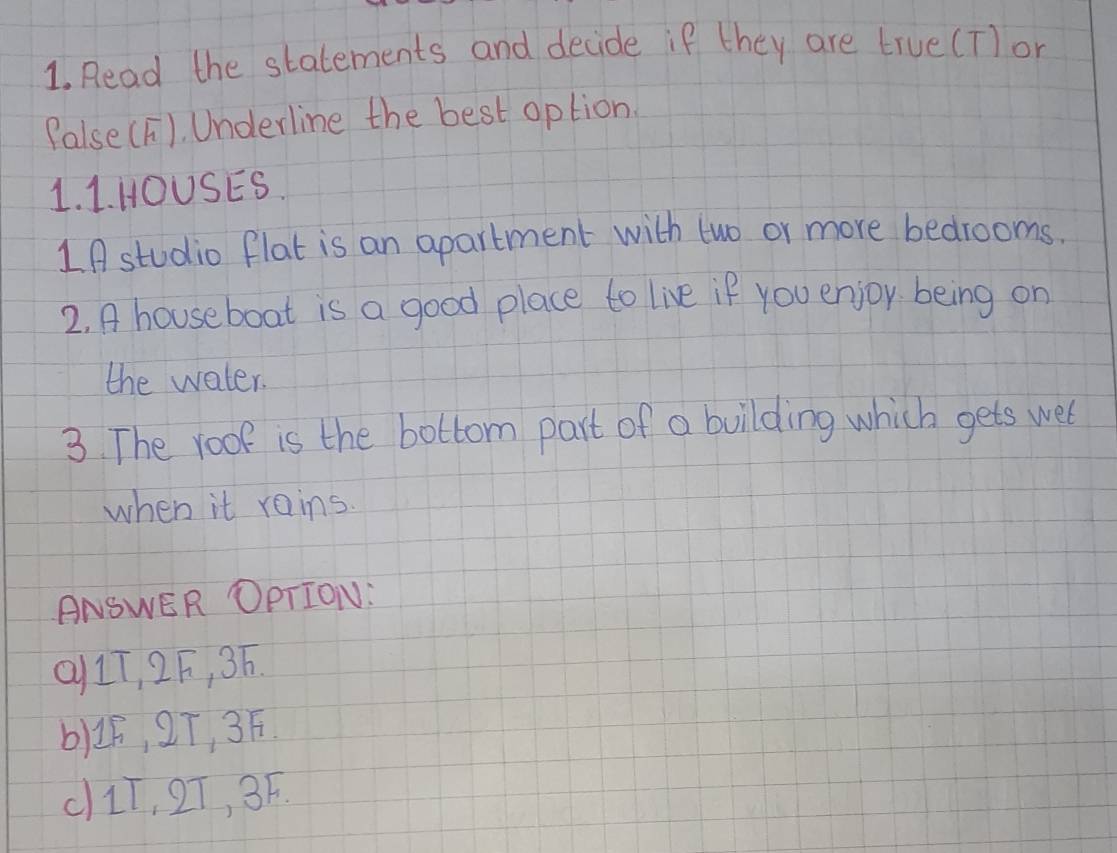 1. Read the statements and decide if they are true (T) or
false (F). Underline the best option.
1.1. HOUSES.
1 A studio flat is an apartment with two or more bedrooms.
2. A houseboat is a good place to live if you enjoy being on
the water.
3. The roof is the bottom part of a building which gets wet
when it rains.
ANSWER OPTION:
a) 1T, 2F, 3F.
b) 1F, 2T, 3F.
c) 1T, 2T, 3F.